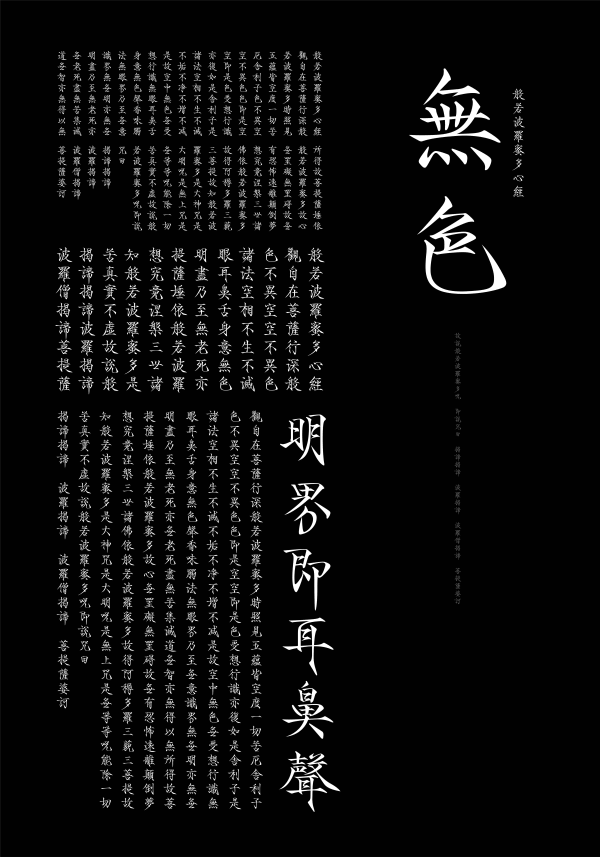 般若波羅蜜多心經
無色
故說般若波羅蜜多咒 即說咒曰 揭諦揭諦 波羅揭諦 波羅僧揭諦 菩提薩婆訶
般若波羅蜜多心經
觀自在菩薩行深般
若波羅蜜多時照見
五蘊皆空度一切苦
厄舍利子色不異空
空不異色色即是空
空即是色受想行識
亦復如是舍利子是
諸法空相不生不滅
不垢不淨不增不減
是故空中無色無受
想行識無眼耳鼻舌
身意無色聲香味觸
法無眼界乃至無意
識界無無明亦無無
明盡乃至無老死亦
無老死盡無苦集滅
道無智亦無得以無
所得故菩提薩埵依
般若波羅蜜多故心
無罣礙無罣礙故無
有恐怖遠離顛倒夢
想究竟涅槃三世諸
佛依般若波羅蜜多
故得阿耨多羅三藐
三菩提故知般若波
羅蜜多是大神咒是
大明咒是無上咒是
無等等咒能除一切
苦真實不虛故說般
若波羅蜜多咒即說
咒曰
揭諦揭諦
波羅揭諦
波羅僧揭諦
菩提薩婆訶
般若波羅蜜多心經
觀自在菩薩行深般
色不異空空不異色
諸法空相不生不滅
眼耳鼻舌身意無色
明盡乃至無老死亦
提薩埵依般若波羅
想究竟涅槃三世諸
知般若波羅蜜多是
苦真實不虛故說般
揭諦揭諦波羅揭諦
波羅僧揭諦菩提薩
明界即耳鼻聲
觀自在菩薩行深般若波羅蜜多時照見五蘊皆空度一切苦厄舍利子
色不異空空不異色色即是空空即是色受想行識亦復如是舍利子是
諸法空相不生不滅不垢不淨不增不減是故空中無色無受想行識無
眼耳鼻舌身意無色聲香味觸法無眼界乃至無意識界無無明亦無無
明盡乃至無老死亦無老死盡無苦集滅道無智亦無得以無所得故菩
提薩埵依般若波羅蜜多故心無罣礙無罣礙故無有恐怖遠離顛倒夢
想究竟涅槃三世諸佛依般若波羅蜜多故得阿耨多羅三藐三菩提故
知般若波羅蜜多是大神咒是大明咒是無上咒是無等等咒能除一切
苦真實不虛故說般若波羅蜜多咒即說咒曰
揭諦揭諦 波羅揭諦 波羅僧揭諦 菩提薩婆訶